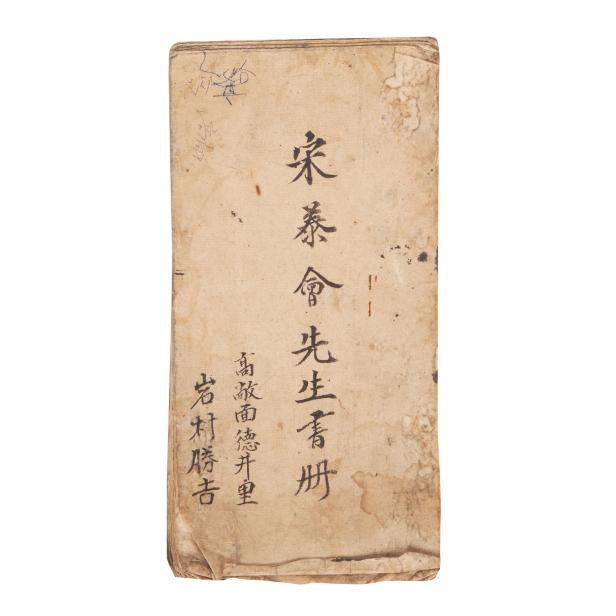 宋泰會先生書册
高敞面德井里
岩村勝吉